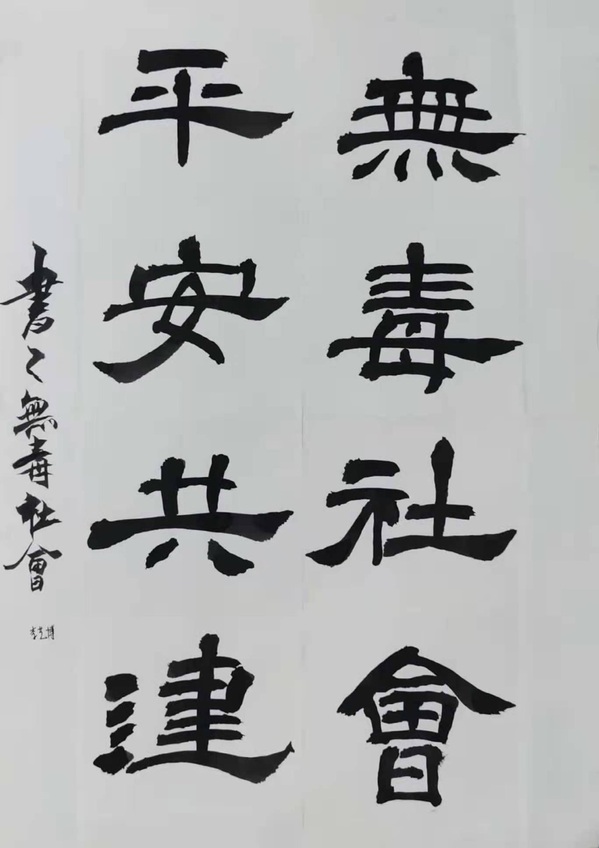 無毒社會
平安共建
書之無毒社會